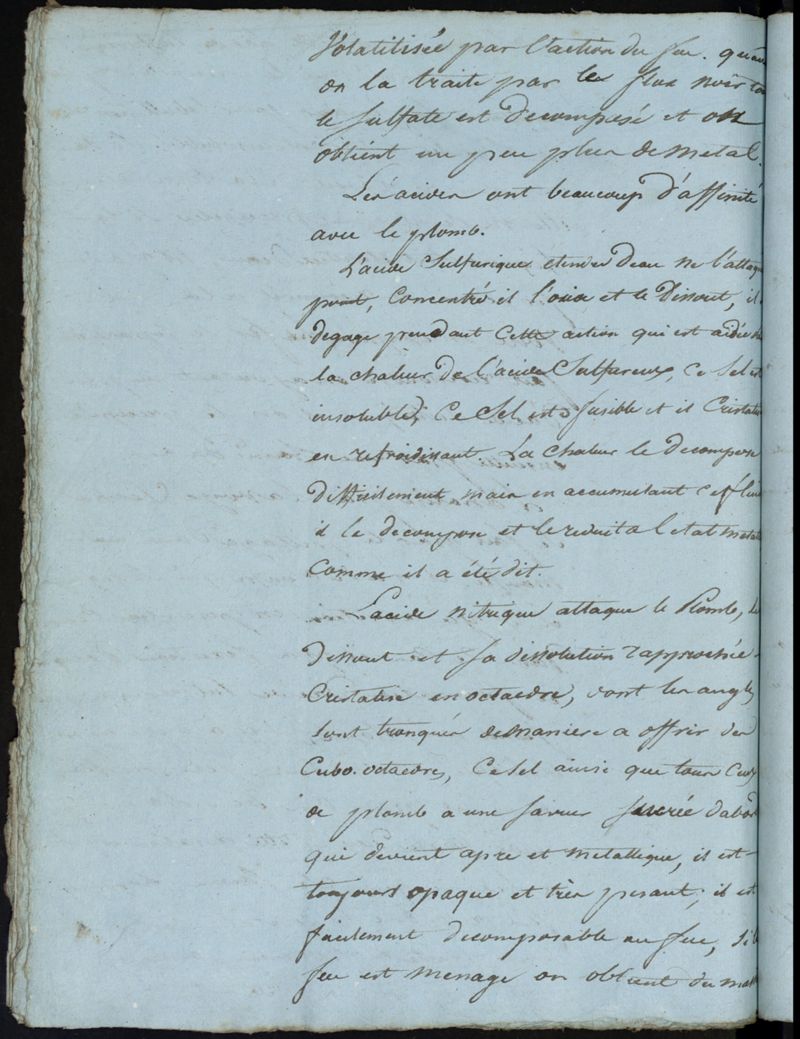 Volatilisée par l'action du feu. quand
on la traite par le flux noir
le Sulfate est decomposé et on
obtient un peu plus de metal.
Les acides ont beaucoup d'affinité
avec le plomb.
L'acide Sulfurique etendu deau ne l'attaque
point, Concentré il l'oxide et le dissout, il
degage pendant Cette action qui est aidée
la chaleur de l'acide Sulfureux, Ce Sel est
insoluble, Ce Sel est fusible et il Cristalise
en refroidissant. La chaleur le decompose
difficilement mais en accumulant
il le decompose et le reduit a l etat metal
Comme il a été dit.
L'acide nitrique attaque le Plomb, le
dissout et sa dissolution rapprochée
Cristalise en octaedre, dont les angles
sont tronqués demaniere a offrir des
Cubo-octaedres, Ce Sel ainsi que tous Ceux
de plomb a une saveur sucrée dabord
qui devient apre et metallique, il est
toujours opaque et très pesant; il est
facilement decomposable au feu, Si le
feu est menagé on obtient du